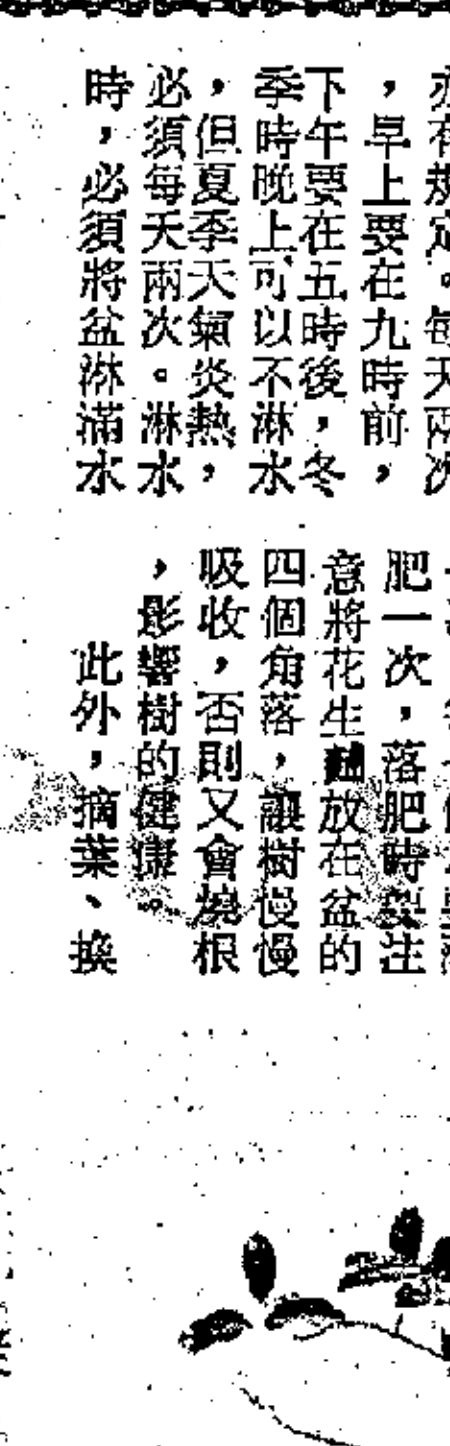 亦有規定。每天兩次
，早上要在九時前，
下午要在五時後，冬
季時晚上可以不淋水
，但夏季天氣炎熱，
必須每天兩次。淋水
時，必須將盆淋滿水
肥一次，落肥時要注
意將花生麯放在盆的
四個角落，讓樹慢慢
吸收，否則又會燒根
，影響樹的健康。
此外，摘葉、換